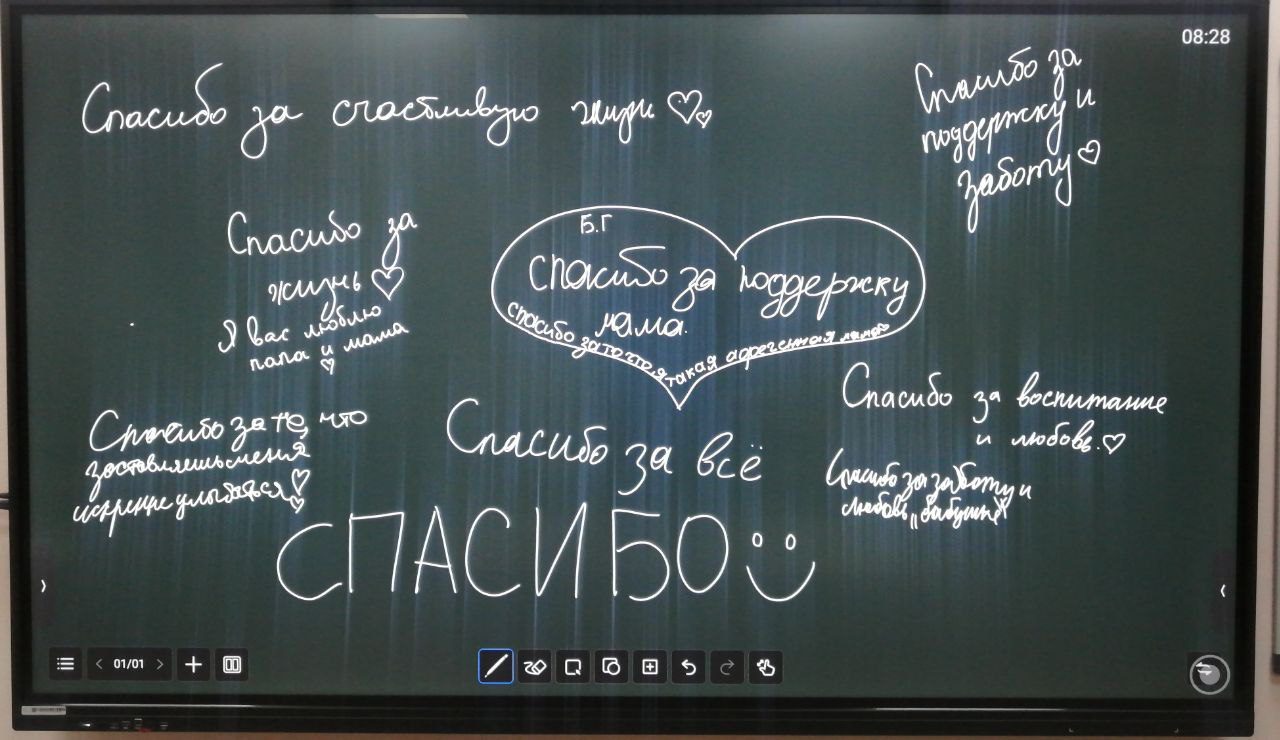 08:28
Спасибо за счастливую жизнь
Спасибо за
поддержку и
заботу
Спасибо за
жизнь
Я вас люблю
папа и мама
Б.Г
спасибо за поддержку
мама.
спасибо за то что я такая офигенная мама
Спасибо за те, что
заставляешь меня
искренне улыбаться
Спасибо за всё
Спасибо за воспитание
и любовь.
Спасибо за заботу и
любовь, "бабушка"
СПАСИБО
01/01